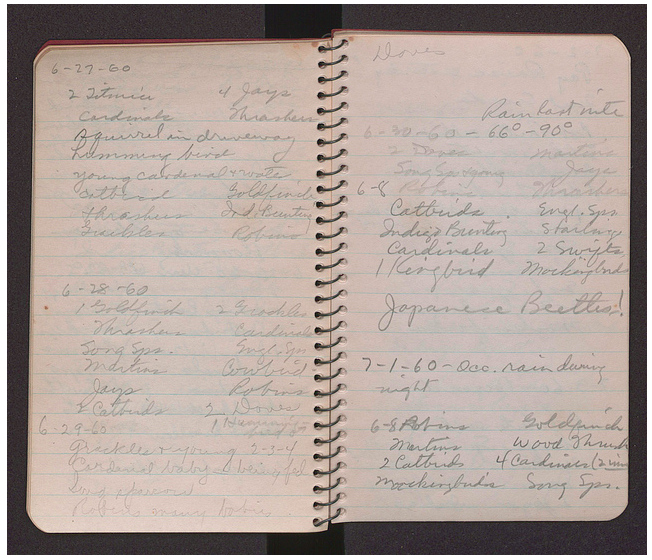 6-27-60
2 Titmice 4 Jays
Cardinals Thrashers
Squirrel in driveway
humming bird
young cardinal
Catbird Goldfinch
Thrashers Ind. Bunting
Robins
6-28-60
1 Goldfinch 2 Grackles
Thrashers Cardinals
Song Sps. Engl. Sps
Martins Cowbird
Jays Robins
2 Catbirds 2 Doves
6-29-60
Grackles & young 2-3-4
Cardinal baby being fed
Song sparrow
Robins many babies
Doves
Rain last nite
6-30-60 - 66° - 90°
2 Doves Martins
Song Sp & young Jays
6-8 Robins Thrashers
Catbirds. Engl. Sps
Indigo Bunting Starlings
Cardinals 2 Swifts
1 Kingbird Mockingbirds
Japanese Beetles!
7-1-60 - Occ. rain during
night
6-8 Robins Goldfinch
Martins Wood Thrush
2 Catbirds 4 Cardinals
Mockingbirds Song Sps.